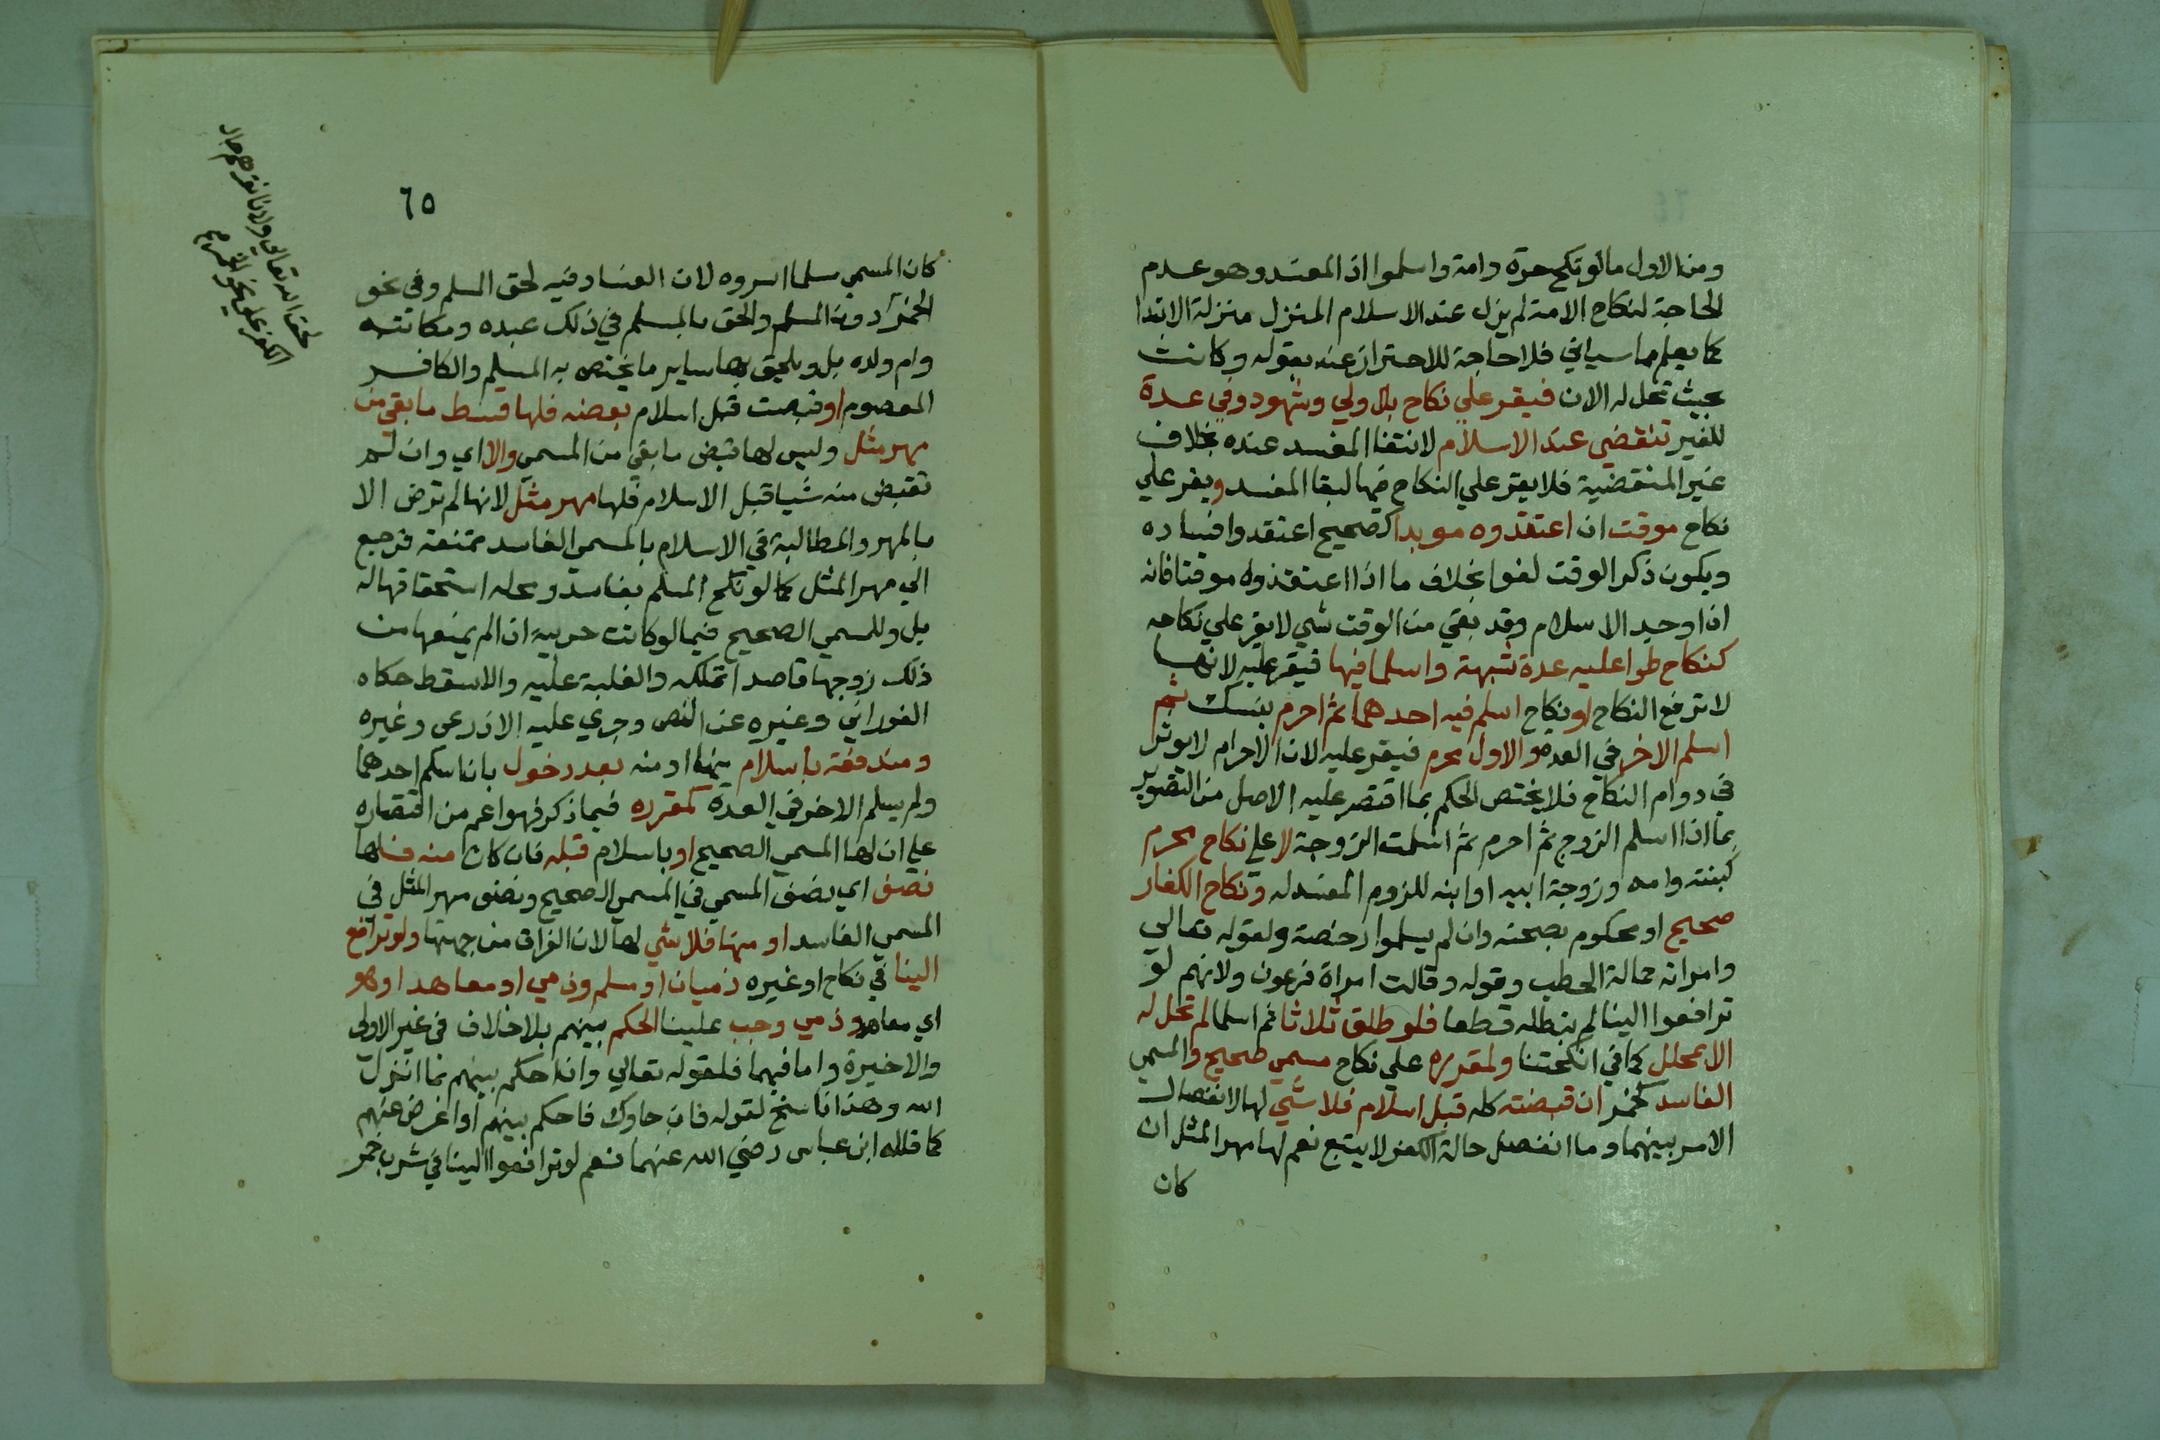 ومن الاول ما لو نكح حرة وامة واسلموا اذ المفسد وهو عدم
الحاجة لنكاح الامة لم يزل عند الاسلام المنزل منزلة الابتدا
كما يعلم مما سياتي فلا حاجة للاحتراز عنه بقوله وكانت
بحيث تحل له الان فيقر علي نكاح بلا ولي وشهود وفي عدة
للغير تنقضي عند الاسلام لانتفا المفسد عنده بخلاف
غير المنقضية فلا يقر علي النكاح فيها لبقا المفسد ويقر علي
نكاح موقت ان اعتقدوه موبدا كصحيح اعتقدوا فساده
ويكون ذكر الوقت لغوا بخلاف ما اذا اعتقدوه موقتا فانه
اذا وجد الاسلام وقد بقي من الوقت شي لا يقر علي نكاحه
كنكاح طرا عليه عدة شبهة واسلما فيها فيقر عليه لانها
لا ترفع النكاح او نكاح اسلم فيه احدهما ثم احرم بنسك ثم
اسلم الاخر في العدة والاول محرم فيقر عليه لان الاحرام لا يوثر
في دوام النكاح فلا يختص الحكم بما اقتصر عليه الاصل من التصوير
بما اذا اسلم الزوج ثم احرم ثم اسلمت الزوجة لا علي نكاح محرم
كبنته وامه وزوجة ابيه او ابنه للزوم المفسد له ونكاح الكفار
صحيح او محكوم بصحته وان لم يسلموا رخصة ولقوله تعالي
وامراته حمالة الحطب وقوله وقالت امراة فرعون ولانهم لو
ترافعوا الينا لم نبطله قطعا فلو طلق ثلاثا ثم اسلما لم تحل له
الا بمحلل كما في انكحتنا ولمقررة علي نكاح مسمي صحيح والمسمي
الفاسد كخمر ان قبضته كله قبل اسلام فلا شي لها لانفصال
الامر بينهما وما انفصل حالة الكفر لا يتبع نعم لها مهر المثل ان
كان
٦٥
كان المسمي مسلما اسروه لان الفساد فيه لحق المسلم وفي نحو
الخمر دون المسلم والحق بالمسلم في ذلك عبده ومكاتبه
وام ولده بل ويلحق بها ساير ما يختص به المسلم والكافر
المعصوم او قبضت قبل اسلام بعضه فلها قسط ما بقي من
مهر مثل وليس لها قبض ما بقي من المسمي والا اي وان لم
تقبض منه شيا قبل الاسلام فلها مهر مثل لانها لم ترض الا
بالمهر والمطالبة في الاسلام بالمسمي الفاسد ممتنعة فترجع
الي مهر المثل كما لو نكح المسلم بفاسد ومحله استحقاقها له
بل وللمسمي الصحيح فيما لو كانت حربية ان لم يمنعها من
ذلك زوجها قاصدا تملكه والغلبة عليه والا سقط حكاه
الفوراني وغيره عن النص وجري عليه الاذرعي وغيره
ومندفعة باسلام منها او منه بعد دخول بان اسلم احدهما
ولم يسلم الاخر في العدة كمقررة فيما ذكر فهو اعم من اقتصاره
علي ان لها المسمي الصحيح او باسلام قبله فان كان منه فلها
نصف اي نصف المسمي في المسمي الصحيح ونصف مهر المثل في
المسمي الفاسد او منها فلا شي لها لان الفراق من جهتها ولو ترافع
الينا في نكاح او غيره ذميان او مسلم وذمي او معاهد او هو
اي معاهد وذمي وجب علينا الحكم بينهم بلا خلاف في غير الاولي
والاخيرة واما فيهما فلقوله تعالي وان احكم بينهم بما انزل
الله وهذا ناسخ لقوله فان جاوك فاحكم بينهم او اعرض عنهم
كما قاله ابن عباس رضي الله عنهما نعم لو ترافعوا الينا في شرب خمر
لحق الله تعالي ولانا نقرهم حال
الكفر علي نحو الخمر